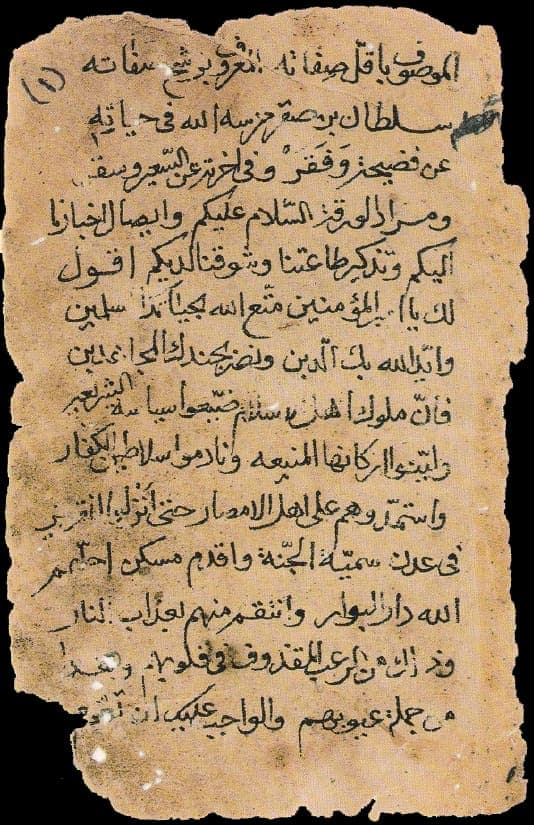 (١)
الموصوف باقل صفاته المعروف برشح صفاته
سلطان بن صقر حرسه الله في حياته
عن فضيحة وَفَقرْ وفي اخرته عن السّعير وسقر
ومراد الورقة السّلام عليكم وايصال اخبارنا
اليكم وتذكير طاعتنا وشوقنا لديكم اقول
لك يا امير المؤمنين متّع الله بحياتك المسلمين
وايّد الله بك الدّين ونصر بجندك المجاهدين
فانّ ملوك اهل الاسلام ضيّعوا سياسة الشريعه
وليّنوا اركانها المنيعه ونادموا سلاطين الكفار
واستمدّوهم على اهل الامصار حتى أنزلوا
في عدن سميّة الجنّة واقدم مسكن احلّهم
الله دار البوار وانتقم منهم بعذاب النار
وذالك من الرعب المقذوف في قلوبهم وهذا
من جملة عيوبهم والواجب عليك ان